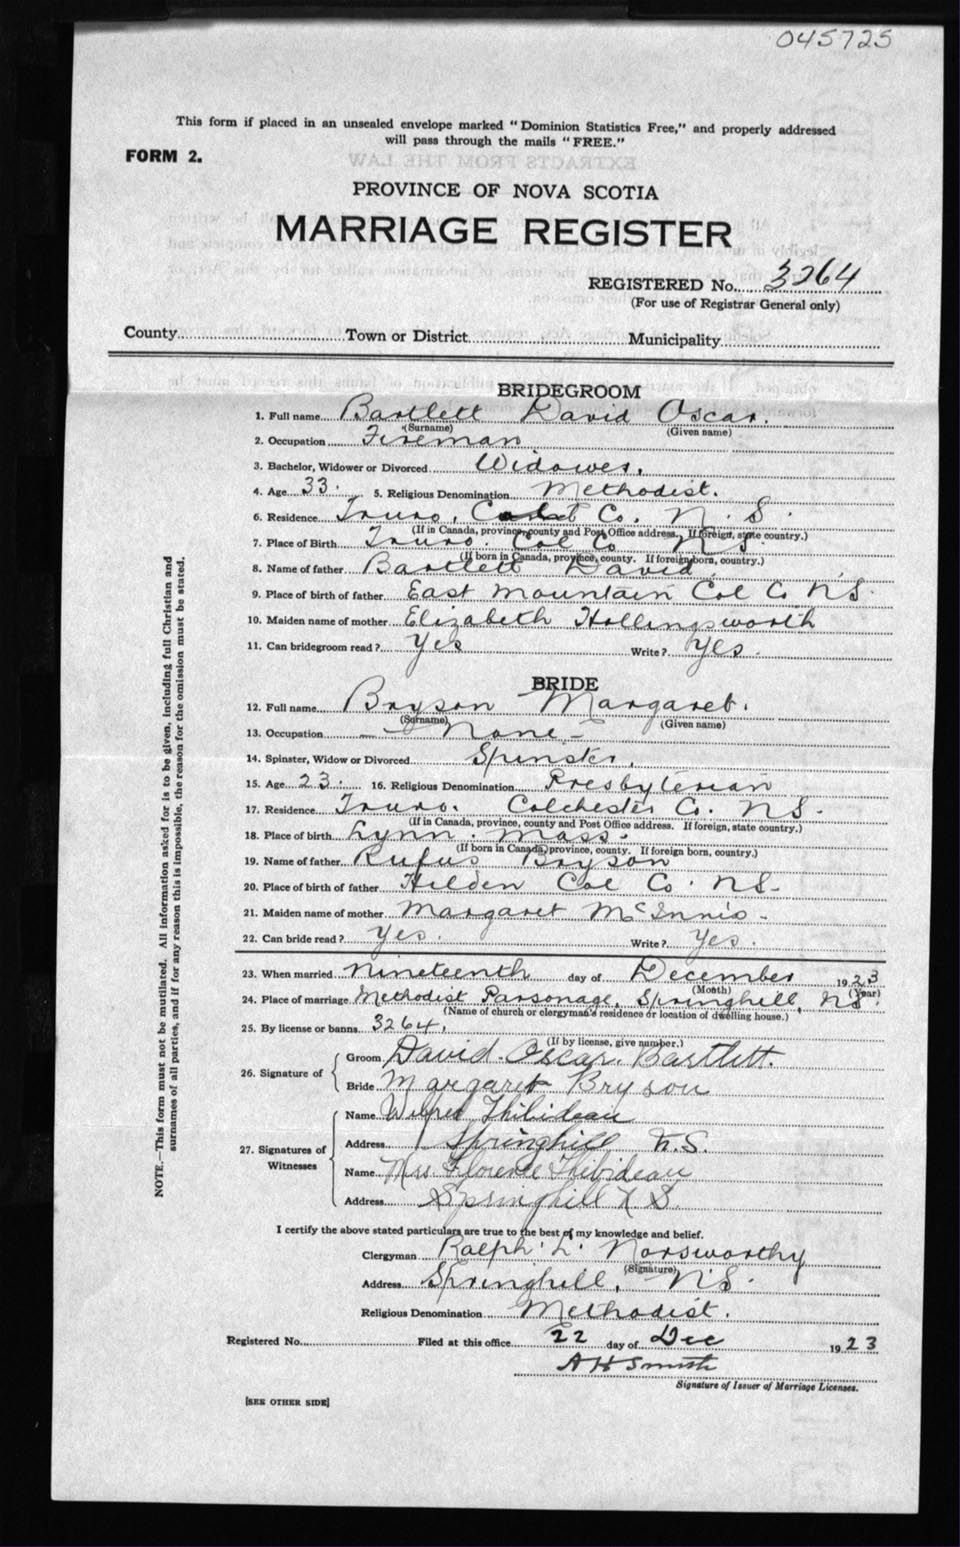 045725
This form if placed in an unsealed envelope marked "Dominion Statistics Free," and properly addressed
will pass through the mails "FREE."
FORM 2.
EXTRACTS FROM THE LAW
PROVINCE OF NOVA SCOTIA
MARRIAGE REGISTER
REGISTERED No. 3264
(For use of Registrar General only)
County Town or District Municipality
BRIDEGROOM
1. Full name Bartlett David Oscar.
(Surname) (Given name)
2. Occupation Fireman
3. Bachelor, Widower or Divorced Widower.
4. Age 33. 5. Religious Denomination Methodist.
6. Residence Truro, Co. N. S.
(If in Canada, province, county and Post Office address. If foreign, state country.)
7. Place of Birth Truro. Col Co N.S.
(If born in Canada, province, county. If foreign born, country.)
8. Name of father Bartlett David
9. Place of birth of father East Mountain Col Co N.S.
10. Maiden name of mother Elizabeth Hollingsworth
11. Can bridegroom read? Yes Write? Yes.
BRIDE
12. Full name Bryson Margaret.
(Surname) (Given name)
13. Occupation — None —
14. Spinster, Widow or Divorced Spinster.
15. Age 23. 16. Religious Denomination Presbyterian
17. Residence Truro. Colchester Co. N.S.
(If in Canada, province, county and Post Office address. If foreign, state country.)
18. Place of birth Lynn. Mass.
(If born in Canada, province, county. If foreign born, country.)
19. Name of father Rufus Bryson
20. Place of birth of father Hilden Col Co. N.S.
21. Maiden name of mother Margaret McInnis -
22. Can bride read? Yes. Write? Yes.
23. When married Nineteenth day of December 1923
(Month) (Year)
24. Place of marriage Methodist Parsonage, Springhill, N.S.
(Name of church or clergyman's residence or location of dwelling house.)
25. By license or banns 3264.
(If by license, give number.)
26. Signature of Groom David. Oscar. Bartlett.
Bride Margaret Bryson
27. Signatures of Witnesses Name Wilfred Thibideau
Address Springhill N.S.
Name Mrs Florence Thibideau
Address Springhill N.S.
I certify the above stated particulars are true to the best of my knowledge and belief.
Clergyman Ralph. L. Norsworthy
(Signature)
Address Springhill, N.S.
Religious Denomination Methodist.
Registered No. Filed at this office 22 day of Dec 1923
A H Smith
Signature of Issuer of Marriage Licenses.
[SEE OTHER SIDE]
NOTE.—This form must not be mutilated. All information asked for is to be given, including full Christian and
surnames of all parties, and if for any reason this is impossible, the reason for the omission must be stated.